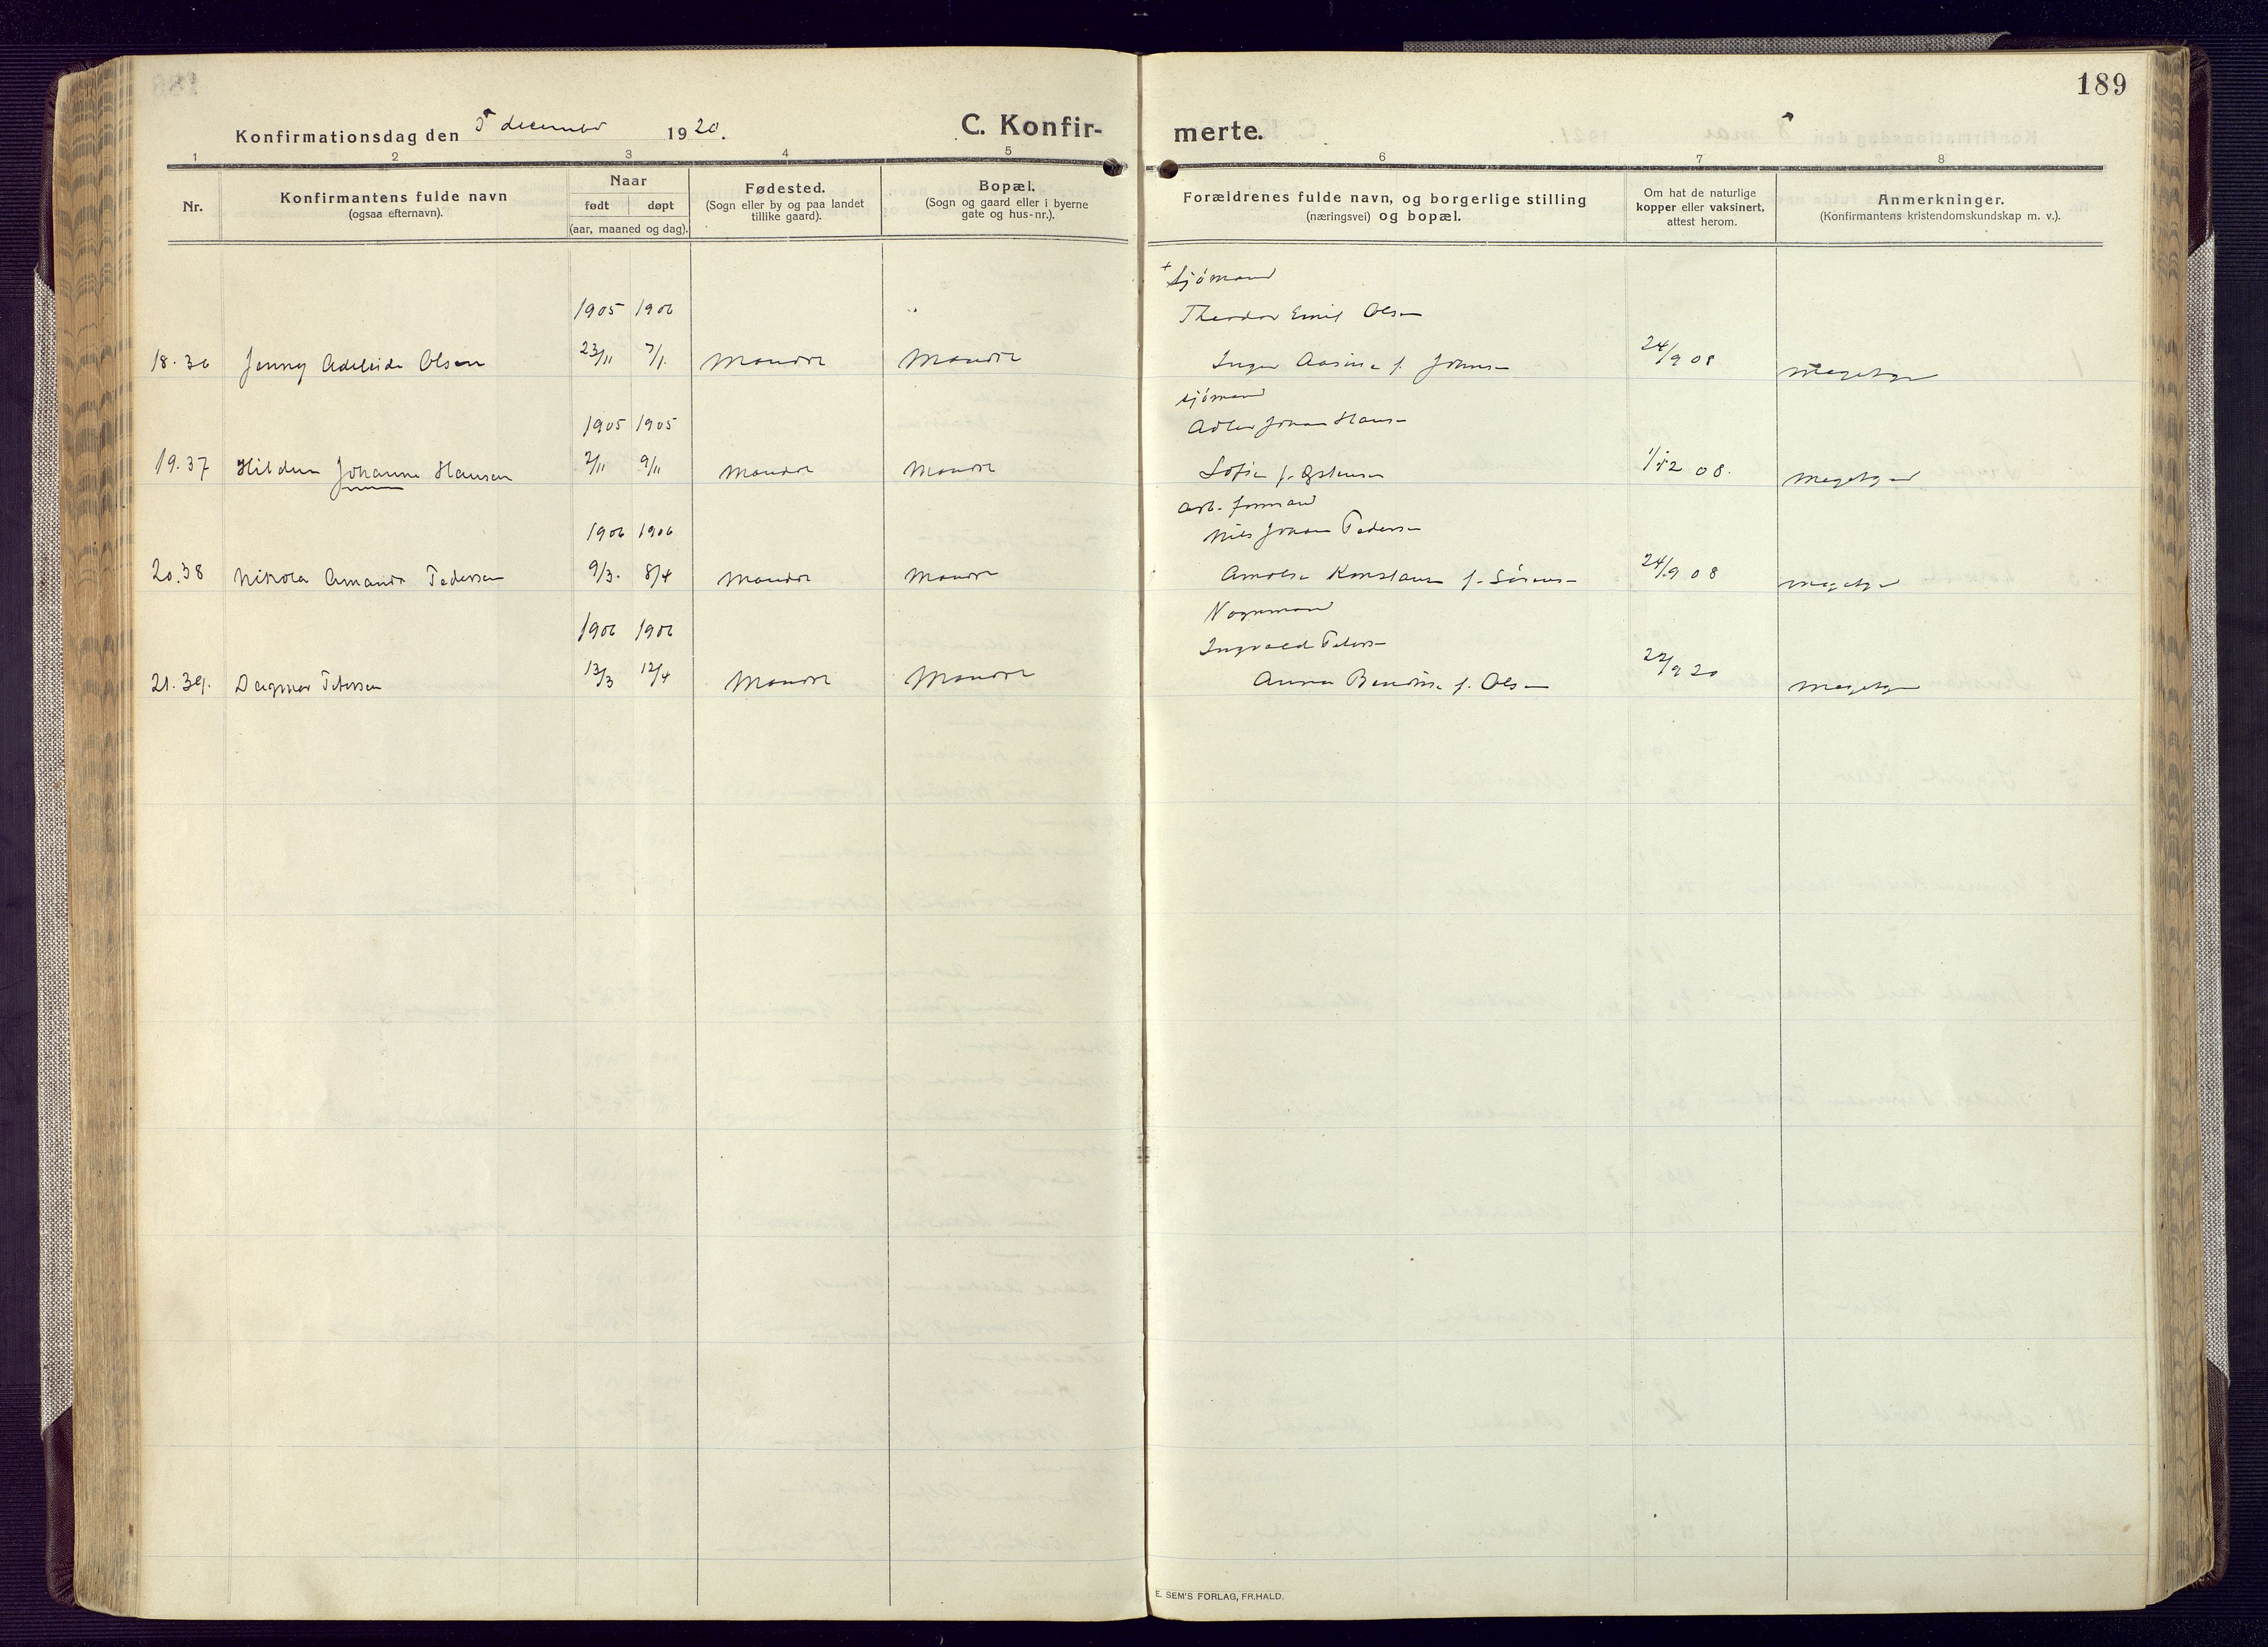 189
Konfirmationsdag den 5 december 1920.
C. Konfir-
merte.
1 2 3 4 5 6 7 8
Nr.
Konfirmantens fulde navn
(ogsaa efternavn).
Naar
født døpt
(aar, maaned og dag).
Fødested.
(Sogn eller by og paa landet
tillike gaard).
Bopæl.
(Sogn og gaard eller i byerne
gate og hus-nr.).
Forældrenes fulde navn, og borgerlige stilling
(næringsvei) og bopæl.
Om hat de naturlige
kopper eller vaksinert,
attest herom.
Anmerkninger.
(Konfirmantens kristendomskundskap m. v.).
+ Sjømand
1905 1906 Theodor Emil Olsen
18. 36 Jenny Adeleide Olsen 23/11 7/1. Mandal Mandal Inger f. 24/9 08 Megetgod
sjømand
1905 1905 Johan Hansen
19. 37 Johanne Hansen 2/11 9/11 Mandal Mandal Sofie f. 1/12 08. Megetgod
arb. formand
1906 1906 Nils Johan Pedersen
20. 38 Nikola Amanda Pedersen 9/3. 8/4 Mandal Mandal f. 24/9 08 megetgod
Vognmand
1906 1906 Ingvald Petersen
21. 39. Dagmar Petersen 13/3 12/4 Mandal Mandal Anna f. Olsen 22/9 20 Megetgod
E. SEM'S FORLAG, FR.HALD.